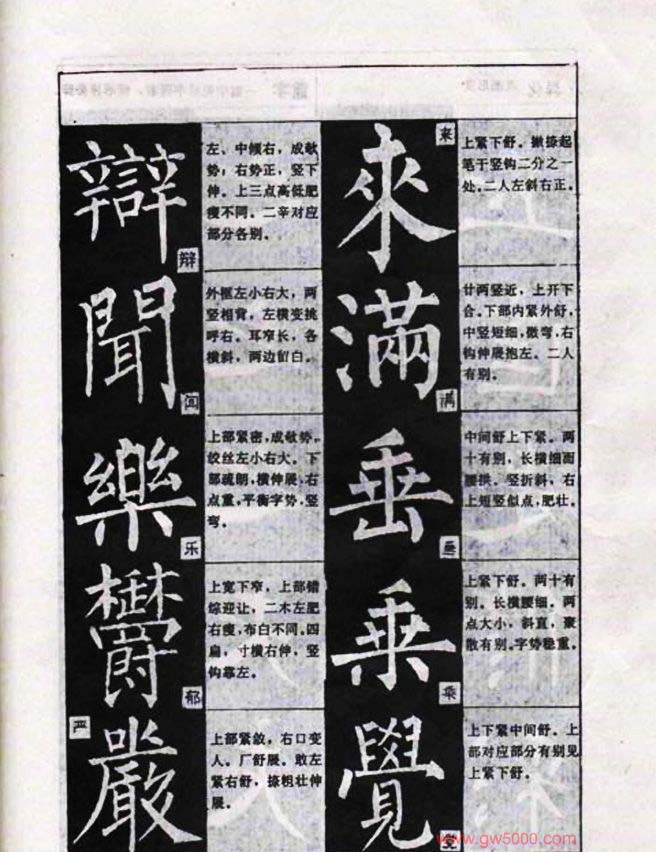 來
来
上紧下舒。撇捺起
笔于竖钩二分之一
处。二人左斜右正。
滿
满
廿两竖近，上开下
合。下部内紧外舒，
中竖短细，微弯，右
钩伸展抱左。二人
有别。
垂
垂
中间舒上下紧。两
十有别，长横细而
腰拱。竖折斜，右
上短竖似点，肥壮。
乘
乘
上紧下舒。两十有
别。长横腰细。两
点大小，斜直，聚
散有别。字势稳重。
覺
上下紧中间舒。上
部对应部分有别见
上紧下舒。
辯
辩
左、中倾右，成欹
势，右势正，竖下
伸。上三点高低肥
瘦不同。二辛对应
部分各别。
聞
闻
外框左小右大，两
竖相背，左横变挑
呼右。耳窄长，各
横斜，两边留白。
樂
乐
上部紧密，成欹势。
纹丝左小右大。下
部疏朗，横伸展，右
点重，平衡字势，竖
弯。
欝
郁
上宽下窄，上部错
综迎让，二木左肥
右瘦，布白不同。四
扁，寸横右伸，竖
钩靠左。
嚴
严
上部紧敛，右口变
人。厂舒展。敢左
紧右舒，捺粗壮伸
展。
www.gw5000.com